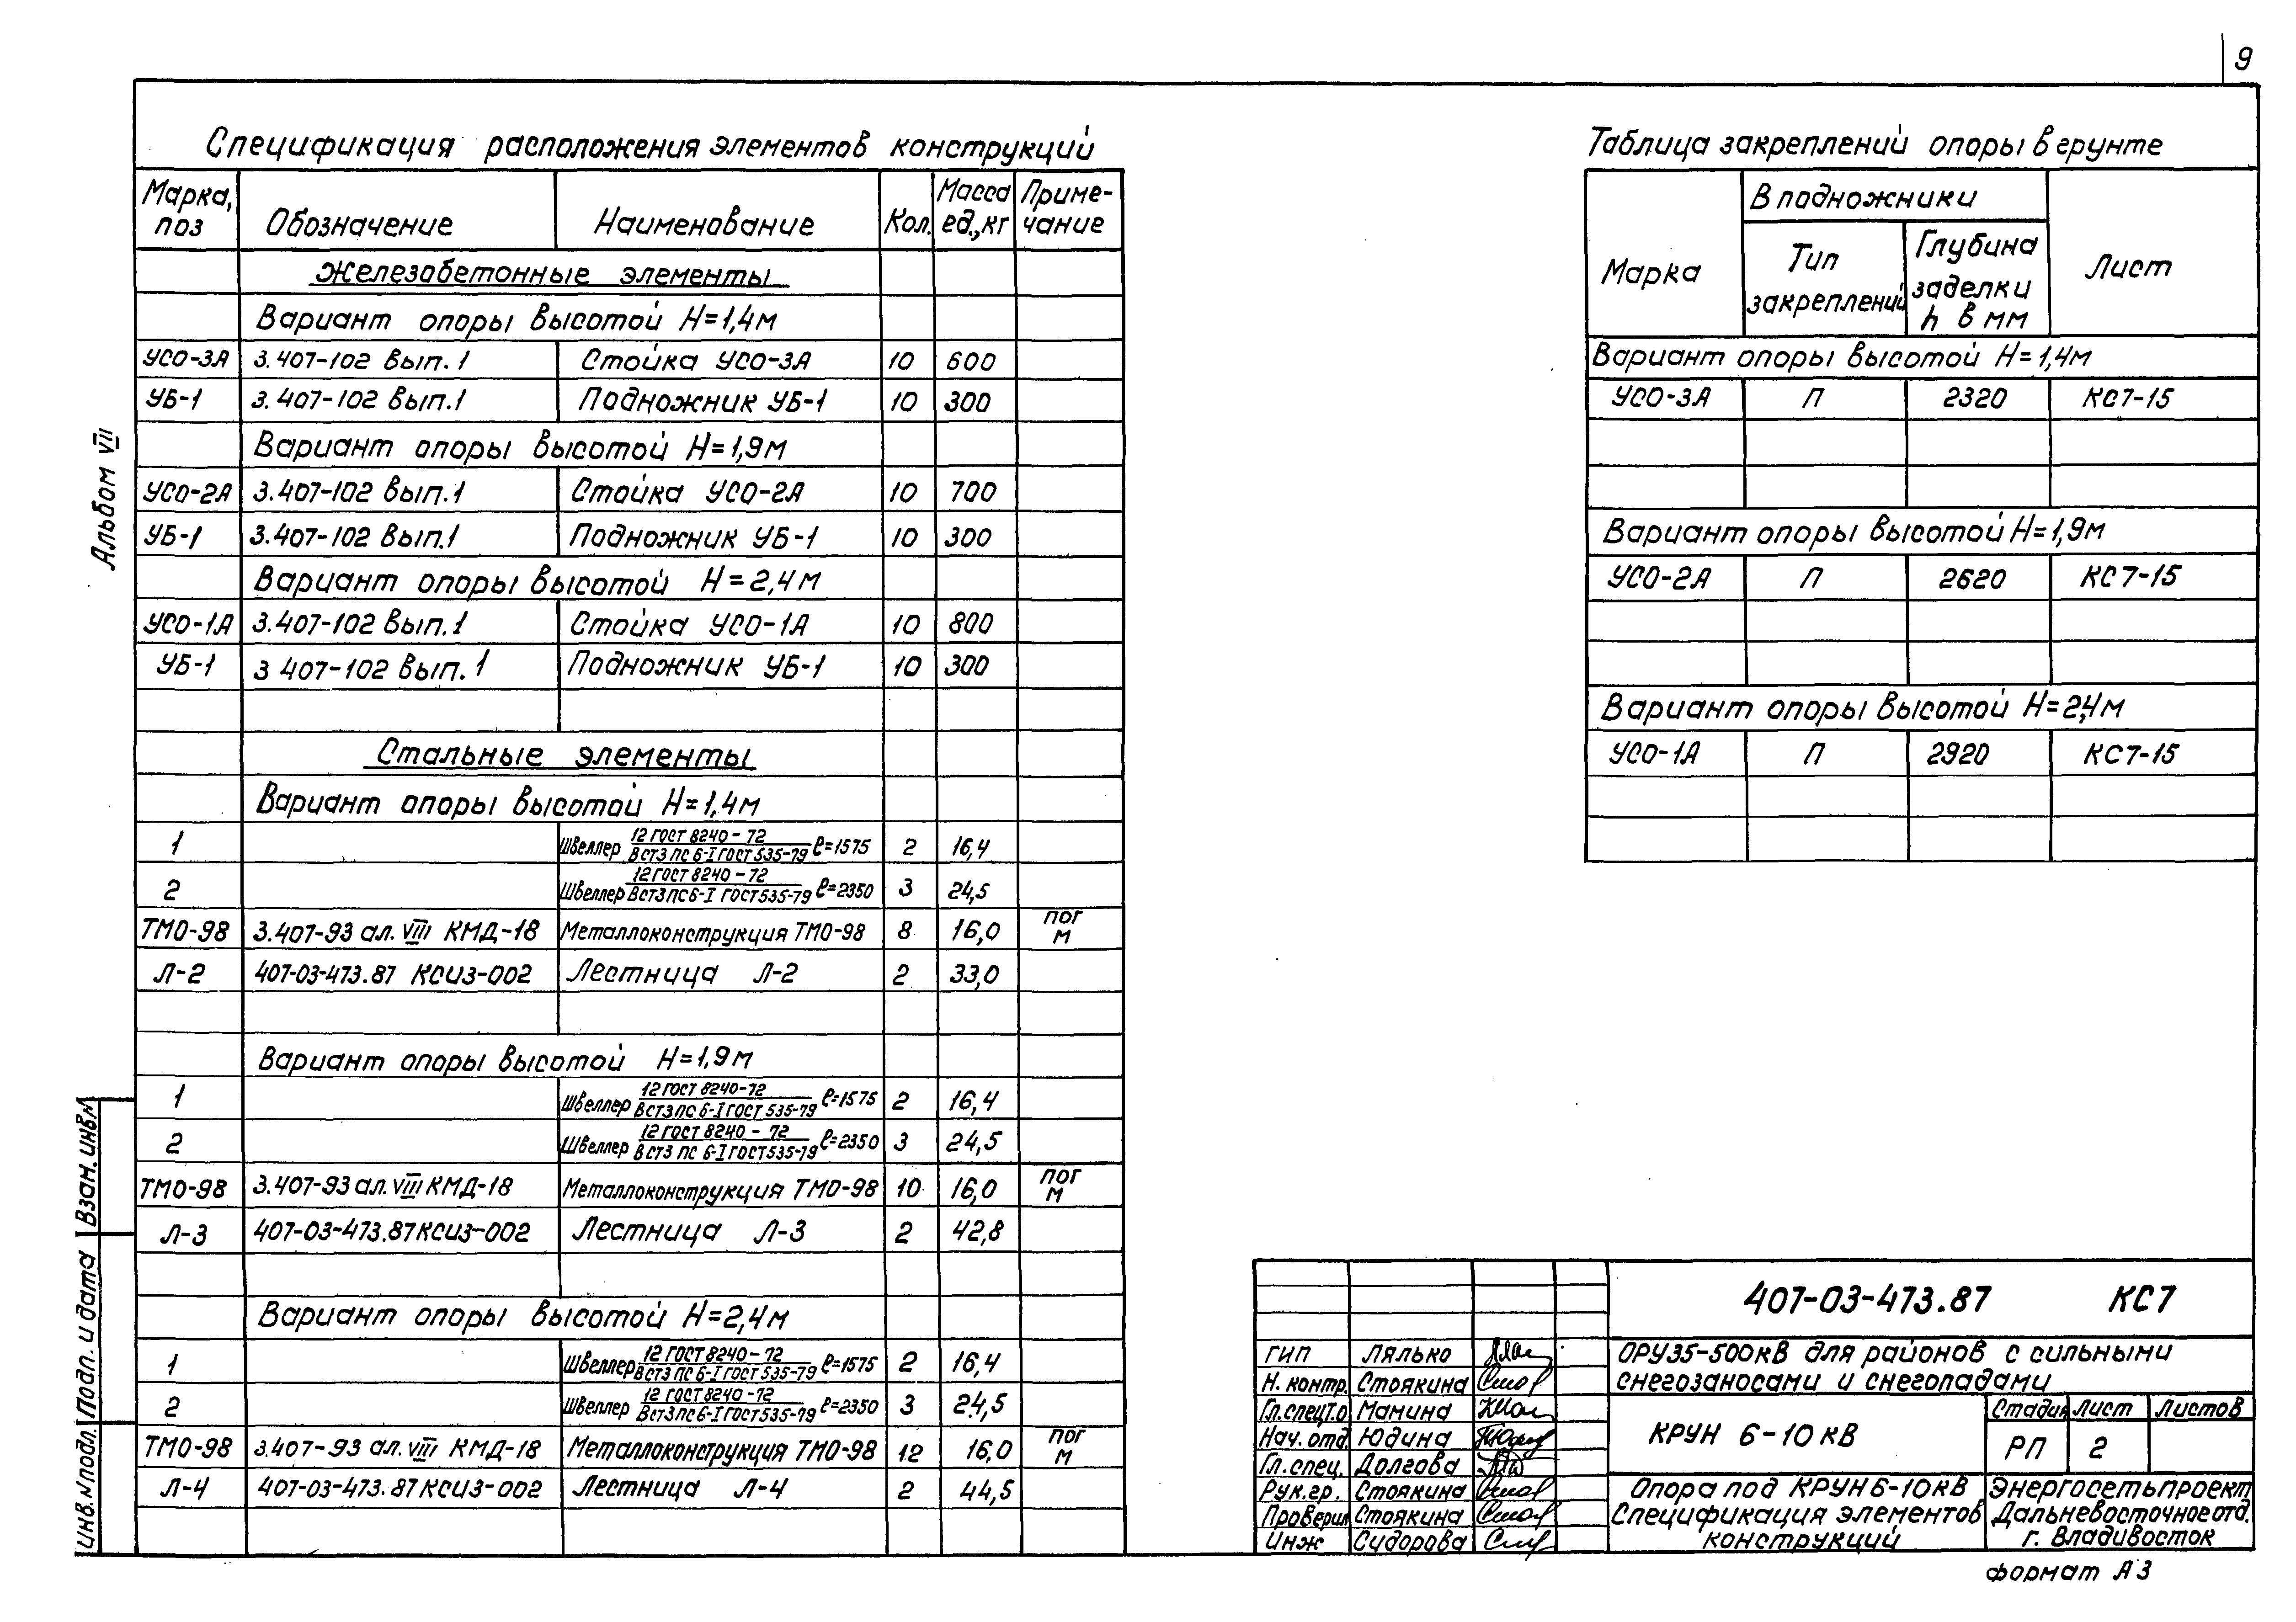 9
Альбом VII
Спецификация расположения элементов конструкций
Марка, поз | Обозначение | Наименование | Кол. | Масса ед.,кг | Приме-чание
Железобетонные элементы
Вариант опоры высотой Н=1,4м
УСО-3А | 3.407-102 Вып.1 | Стойка УСО-3А | 10 | 600
УБ-1 | 3.407-102 Вып.1 | Подножник УБ-1 | 10 | 300
Вариант опоры высотой Н=1,9м
УСО-2А | 3.407-102 Вып.1 | Стойка УСО-2А | 10 | 700
УБ-1 | 3.407-102 Вып.1 | Подножник УБ-1 | 10 | 300
Вариант опоры высотой Н=2,4м
УСО-1А | 3.407-102 Вып.1 | Стойка УСО-1А | 10 | 800
УБ-1 | 3 407-102 Вып.1 | Подножник УБ-1 | 10 | 300
Стальные элементы
Вариант опоры высотой Н=1,4м
1 | Швеллер 12 ГОСТ 8240-72 / ВСт3 пс 6-I ГОСТ 535-79 ℓ=1575 | 2 | 16,4
2 | Швеллер 12 ГОСТ 8240-72 / ВСт3 пс 6-I ГОСТ 535-79 ℓ=2350 | 3 | 24,5
ТМО-98 | 3.407-93 ал. VIII КМД-18 | Металлоконструкция ТМО-98 | 8 | 16,0 | пог м
Л-2 | 407-03-473.87 КСИЗ-002 | Лестница Л-2 | 2 | 33,0
Вариант опоры высотой Н=1,9м
1 | Швеллер 12 ГОСТ 8240-72 / ВСт3 пс 6-I ГОСТ 535-79 ℓ=1575 | 2 | 16,4
2 | Швеллер 12 ГОСТ 8240-72 / ВСт3 пс 6-I ГОСТ 535-79 ℓ=2350 | 3 | 24,5
ТМО-98 | 3.407-93 ал. VIII КМД-18 | Металлоконструкция ТМО-98 | 10 | 16,0 | пог м
Л-3 | 407-03-473.87 КСИЗ-002 | Лестница Л-3 | 2 | 42,8
Вариант опоры высотой Н=2,4м
1 | Швеллер 12 ГОСТ 8240-72 / ВСт3 пс 6-I ГОСТ 535-79 ℓ=1575 | 2 | 16,4
2 | Швеллер 12 ГОСТ 8240-72 / ВСт3 пс 6-I ГОСТ 535-79 ℓ=2350 | 3 | 24,5
ТМО-98 | 3.407-93 ал. VIII КМД-18 | Металлоконструкция ТМО-98 | 12 | 16,0 | пог м
Л-4 | 407-03-473.87 КСИЗ-002 | Лестница Л-4 | 2 | 44,5
Таблица закреплений опоры в грунте
Марка | В подножники | Лист
Тип закреплений | Глубина заделки h в мм
Вариант опоры высотой Н=1,4м
УСО-3А | П | 2320 | КС7-15
Вариант опоры высотой Н=1,9м
УСО-2А | П | 2620 | КС7-15
Вариант опоры высотой Н=2,4м
УСО-1А | П | 2920 | КС7-15
Взан. инв.№
Подп. и дата
Инв.№подл.
407-03-473.87 КС7
ОРУ35-500кВ для районов с сильными
снегозаносами и снегопадами
ГИП Лялько
Н. контр. Стоякина
Гл.спецТ.о Мамина
Нач. отд. Юдина
Гл.спец. Долгова
Рук.гр. Стоякина
Проверил Стоякина
Инж Сидорова
КРУН 6-10 кВ
Стадия Лист Листов
РП 2
Опора под КРУН 6-10кВ
Спецификация элементов
конструкций
Энергосетьпроект
Дальневосточное отд.
г. Владивосток
формат А3